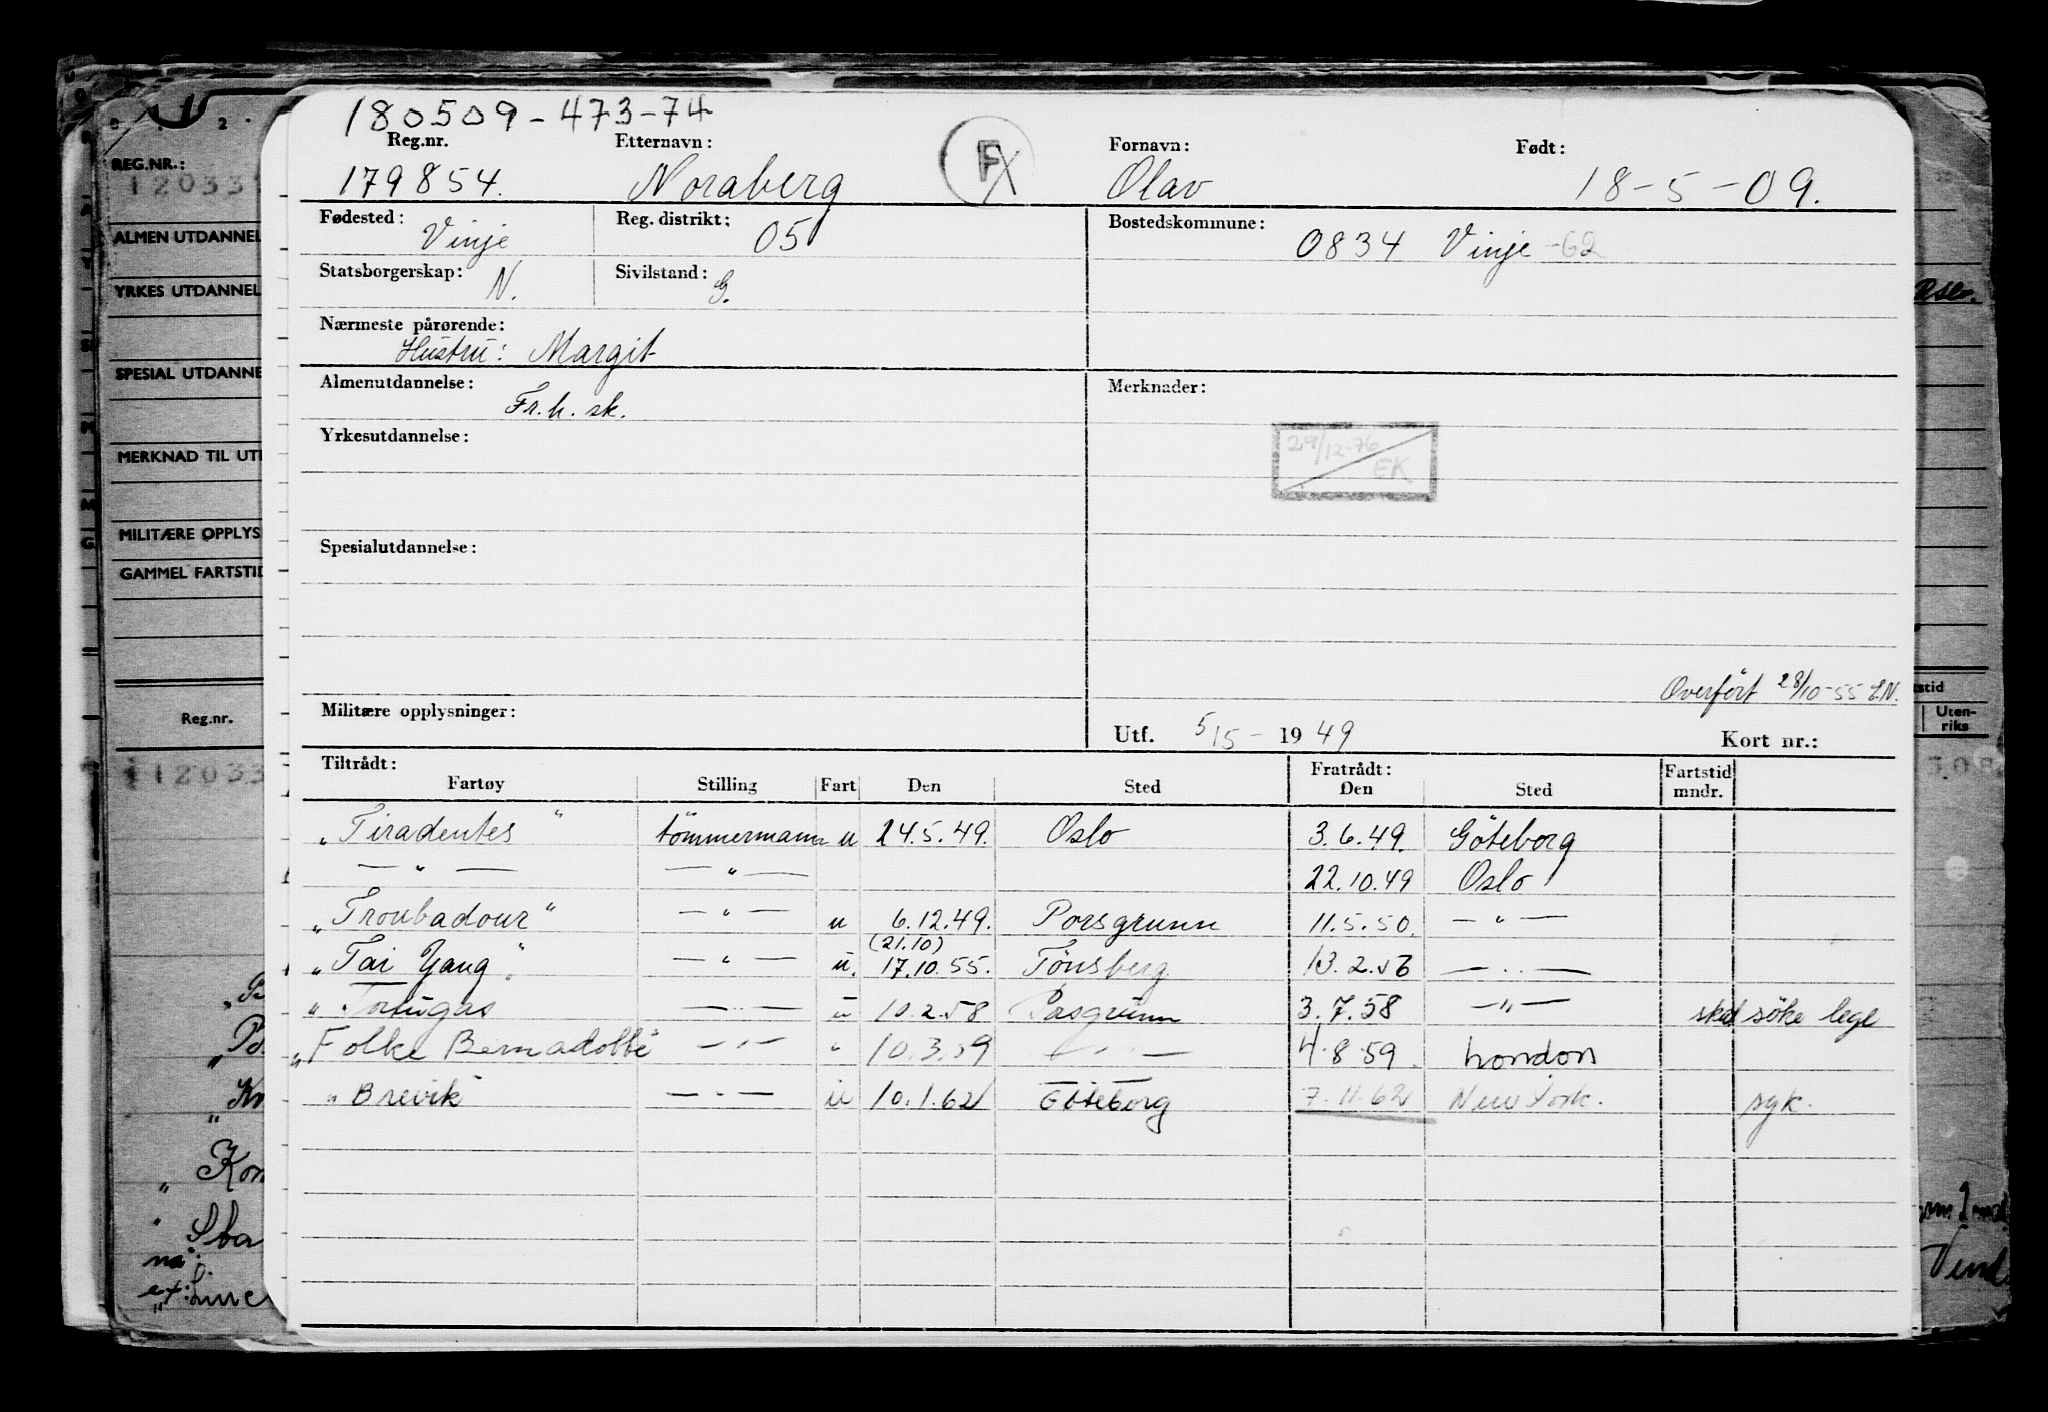 180509-473-74
Reg.nr. Etternavn: Fornavn: Født:
179854. Noraberg F Olav 18-5-09.
Fødested: Vinje Reg. distrikt: 05 Bostedskommune: 0834 Vinje -62
Statsborgerskap: N. Sivilstand: G.
Nærmeste pårørende:
Hustru: Margit
Almenutdannelse: Merknader:
Fr.h. sk.
Yrkesutdannelse:
29/12-76
EK
Spesialutdannelse:
Overført 28/10-55
Militære opplysninger:
Utf. 5/5- 1949 Kort nr.:
Tiltrådt: Fratrådt: Fartstid
Fartøy Stilling Fart Den Sted Den Sted mndr.
"Tiradentes" tömmermann u 24.5.49. Oslo 3.6.49. Göteborg
— " — — " — 22.10.49 Oslo
"Troubadour" — " — u 6.12.49. Porsgrunn 11.5.50. — " —
(21.10)
"Tai Yang" — " — u. 17.10.55. Tönsberg 13.2.56 — " —
"Tortugas — " — u 10.2.58 Pasgrunn 3.7.58 — " — skal söke lege
"Folke Bernadotte" — " — " 10.3.59 — " — 4.8.59. London
"Brevik" — " — u 10.1.62 Göteborg 7.11.62 New York. syk.
REG.NR.:
ALMEN UTDANNEL
YRKES UTDANNEL
SPESIAL UTDANNE
MERKNAD TIL UT
MILITÆRE OPPLYS
GAMMEL FARTSTID
Reg.nr.
12033
Uten-
riks